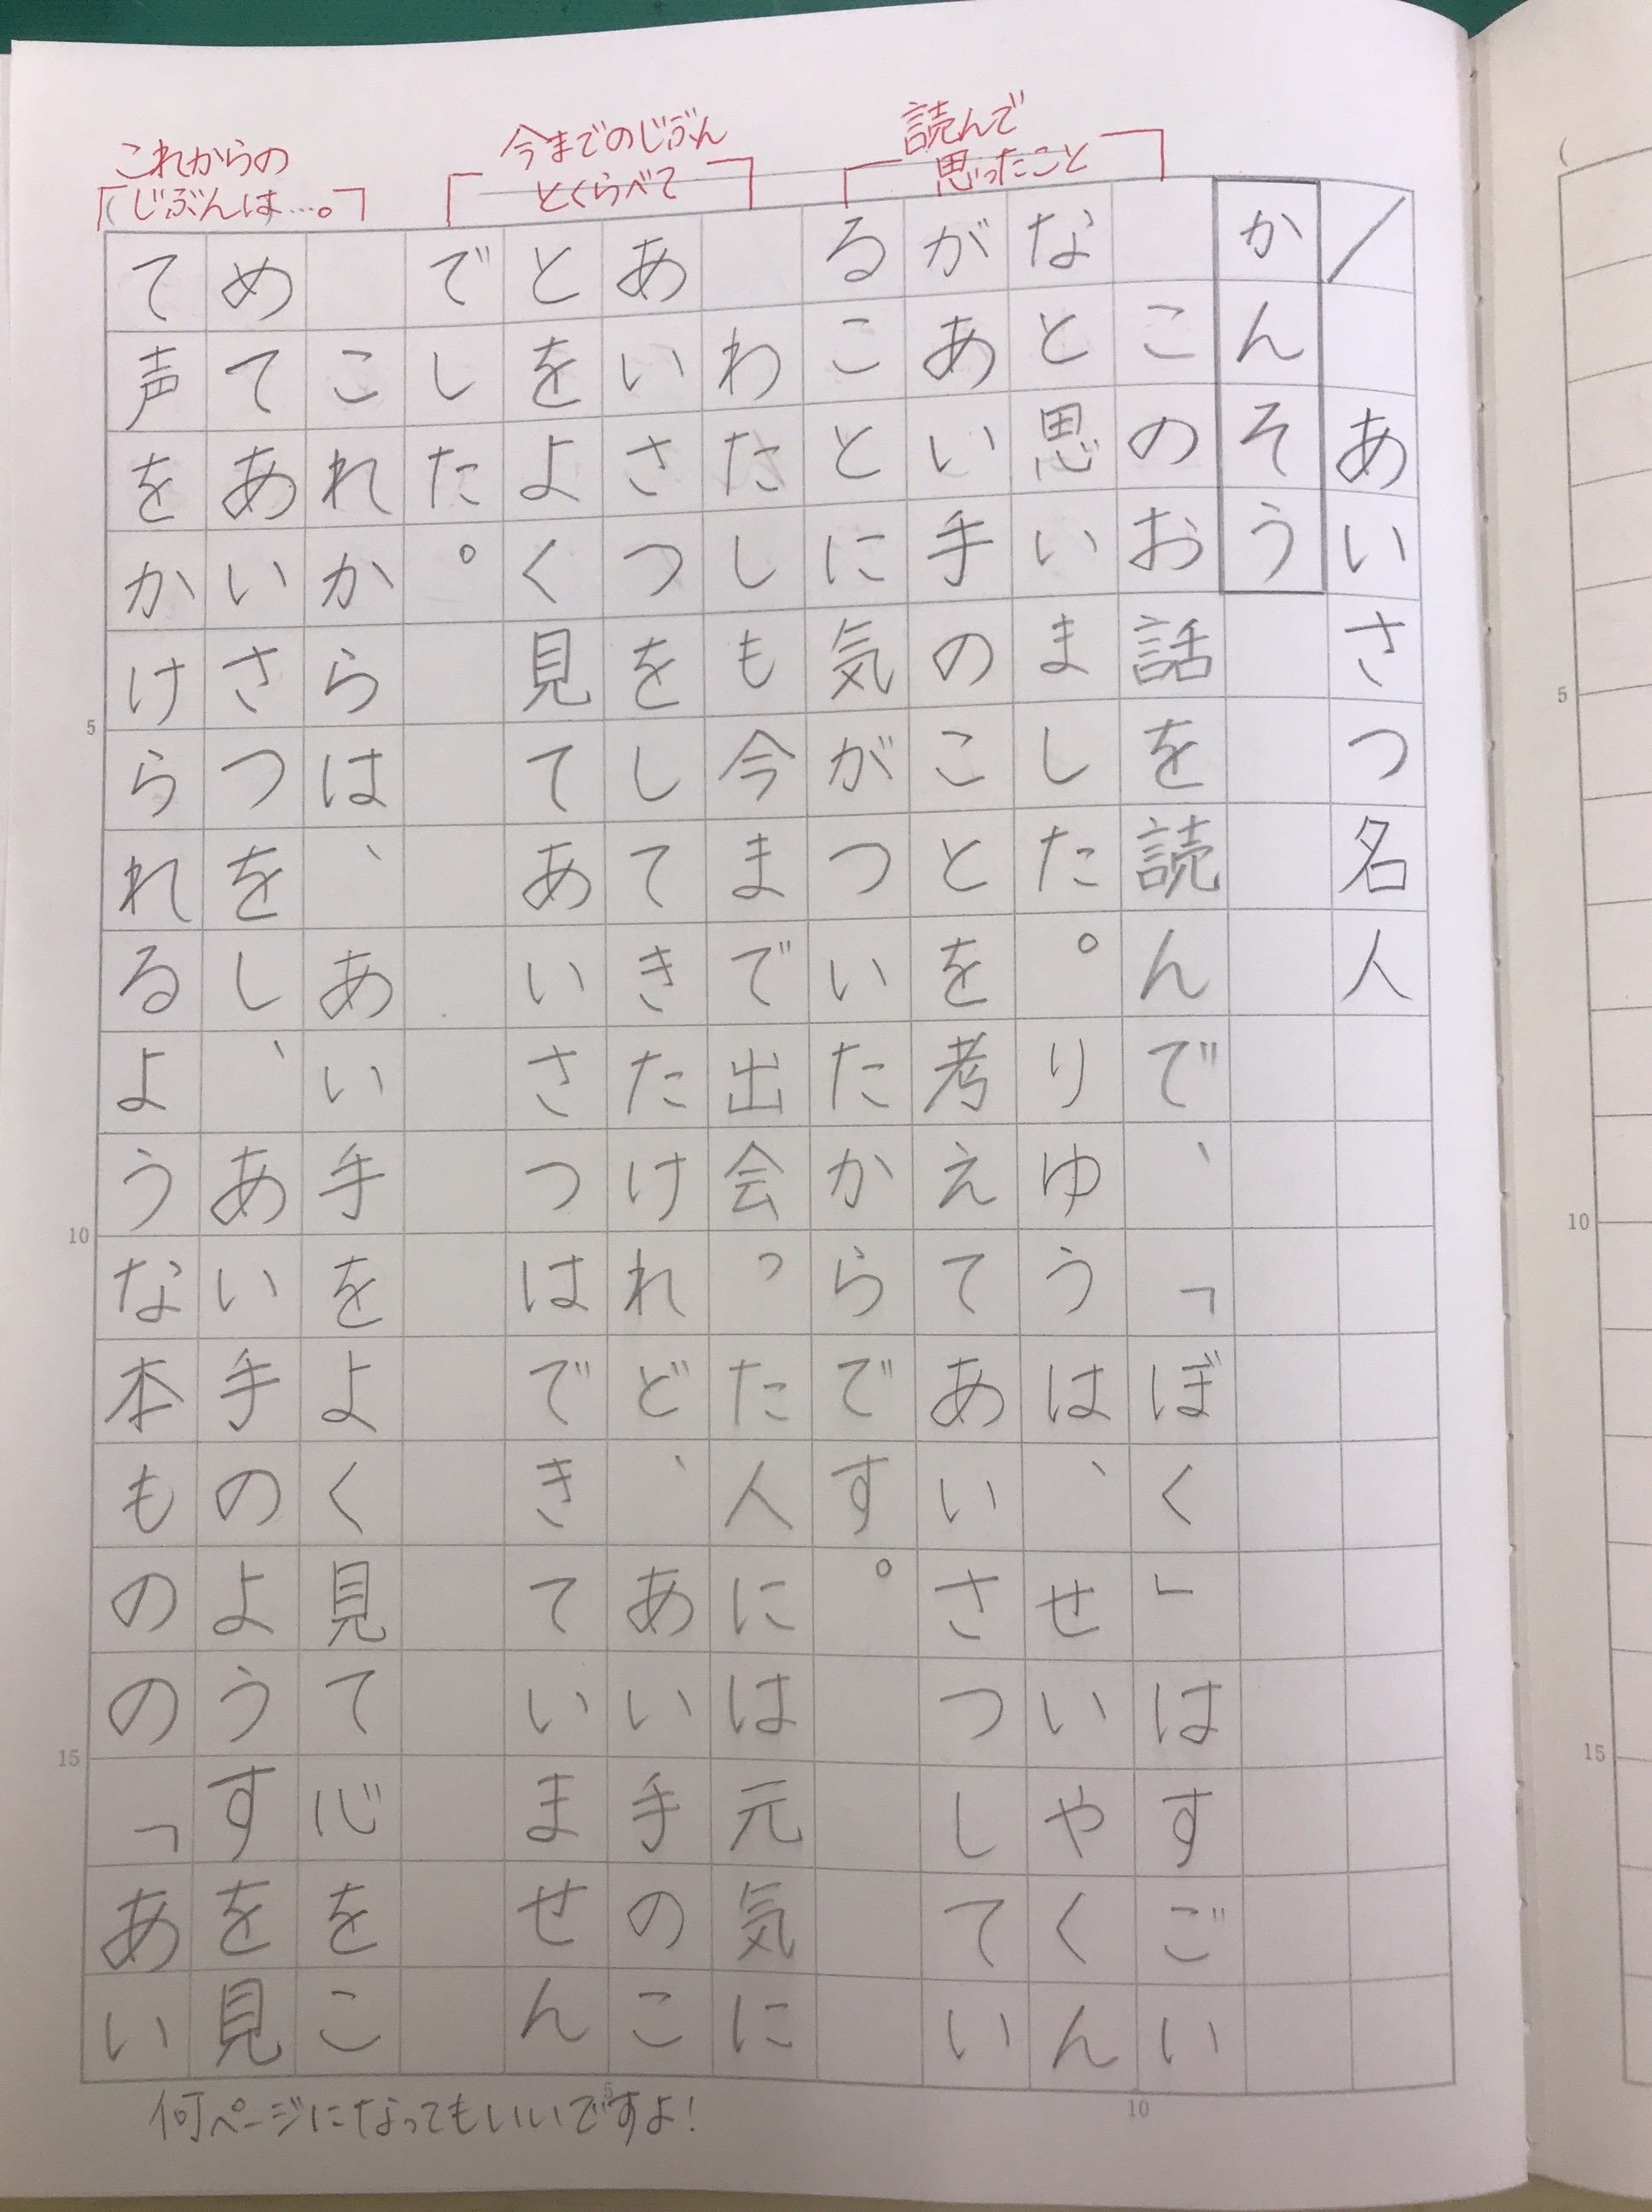 読んで
思ったこと
今までのじぶん
とくらべて
これからの
じぶんは…。
/ あいさつ名人
かんそう
このお話を読んで、「ぼく」はすごい
なと思いました。りゆうは、せいやくん
があい手のことを考えてあいさつしてい
ることに気がついたからです。
わたしも今まで出会った人には元気に
あいさつをしてきたけれど、あい手のこ
とをよく見てあいさつはできていません
でした。
これからは、あい手をよく見て心をこ
めてあいさつをし、あい手のようすを見
て声をかけられるような本もののの「あい
何ページになってもいいですよ!
5
10
15
5
10
5
10
15